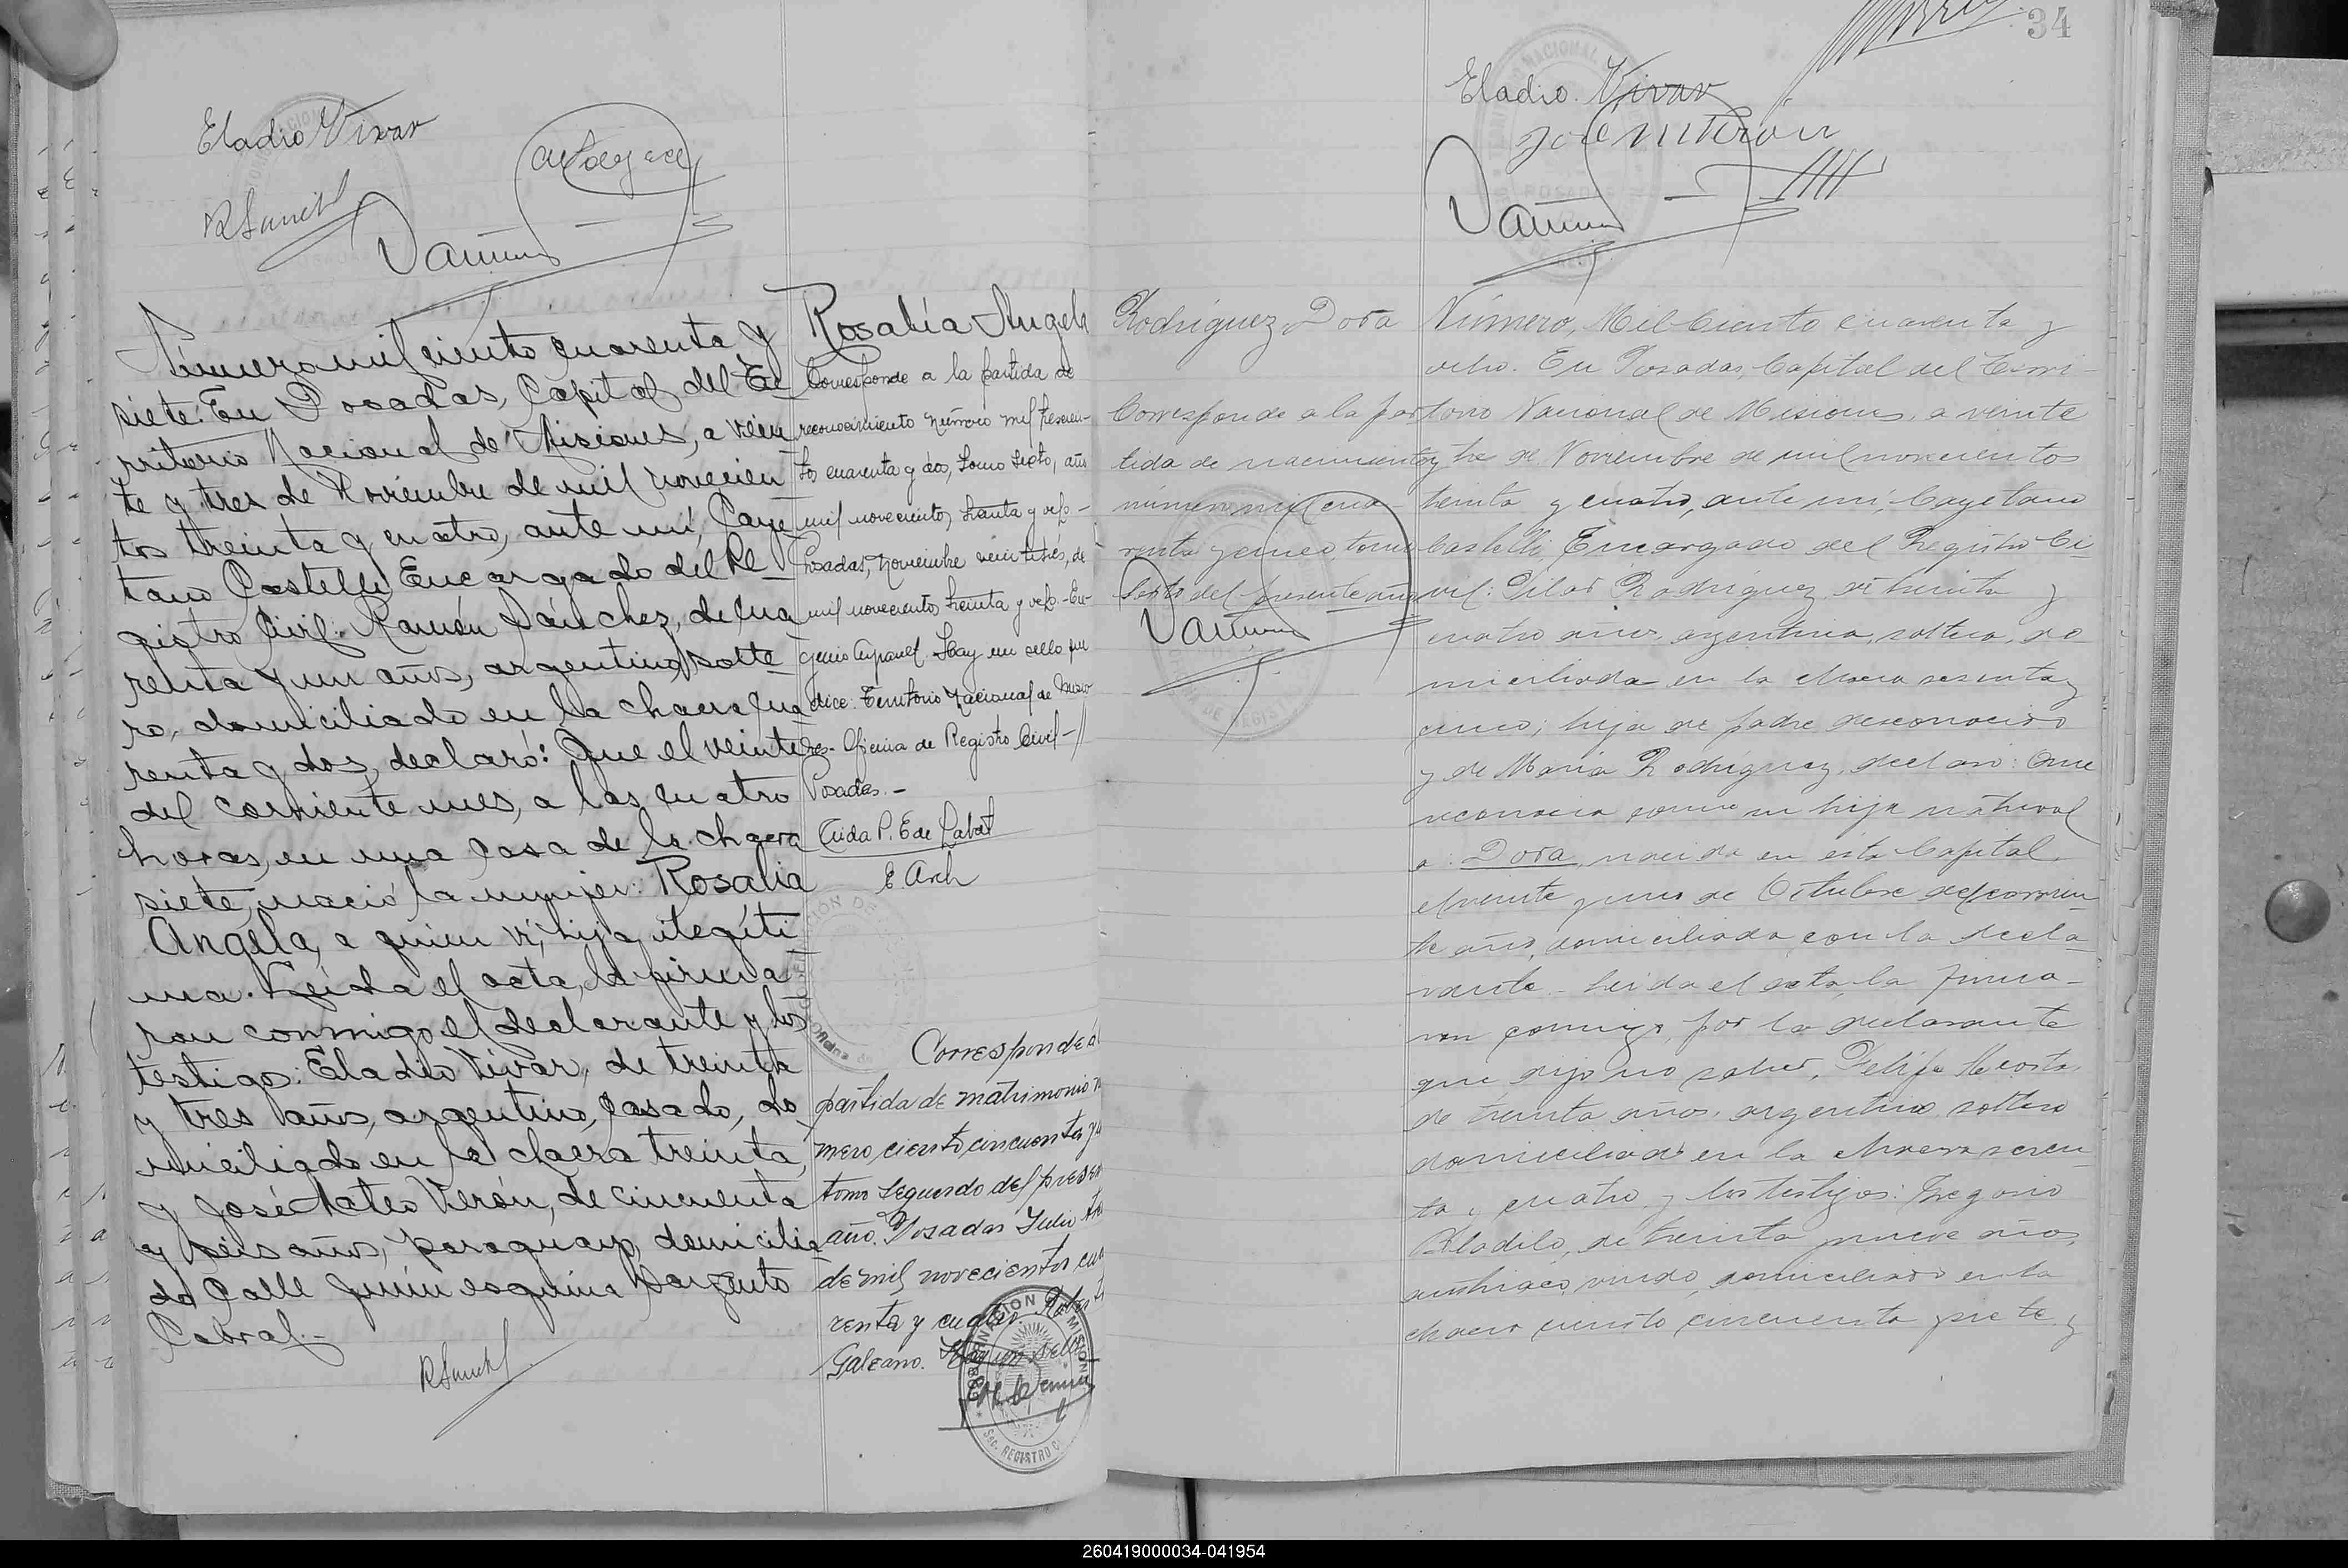 Eladio Vivar
RSanchez
Número mil ciento cuarenta y
siete: En Posadas, Capital del Te
rritorio Nacional de Misiones, a vein
te y tres de Noviembre de mil novecien
tos treinta y cuatro, ante mí, Caye
tano Castelli, Encargado del Re
gistro Civil: Ramón Sánchez, de cua
renta y un años, argentino, solte
ro, domiciliado en la chacra cua
renta y dos, declaró: Que el veinte
del corriente mes, a las cuatro
horas, en una casa de la chacra
siete, nació la mujer: Rosalía
Angela, a quien ví, hija ilegíti
ma. Leída el acta, la firma
ron conmigo el declarante y los
testigos: Eladio Vivar, de treinta
y tres años, argentino, casado, do
miciliado en la chacra treinta,
y José Mateo Verón, de cincuenta
y seis años, paraguayo, domicilia
do Calle Junín esquina Sargento
Cabral.-
RSanchez
Rosalía Angela
Corresponde a la partida de
reconocimiento número mil trescien-
tos cuarenta y dos, tomo sexto, año
mil novecientos treinta y
Posadas, noviembre veintitrés, de
mil novecientos treinta y
Hay un sello que
dice: Territorio Nacional de Misio
nes - Oficina de Registro Civil -
Posadas. -
E Arch
Corresponde a
partida de matrimonio n
mero ciento cincuenta y
tomo segundo del presen
año. Posadas Julio
de mil novecientos cua
renta y cuatro.
Galeano. Hay un sello
34
Eladio Vivar
José M Verón
Rodríguez, Dora
Corresponde a la par
tida de nacimiento
número mil cua
renta y cinco, tomo
sexto del presente año
Número, Mil Ciento cuarenta y
ocho. En Posadas, Capital del Terri-
torio Nacional de Misiones, a veinte
y tres de Noviembre de mil novecientos
treinta y cuatro, ante mí, Cayetano
Castelli, Encargado del Registro Ci
vil: Pilar Rodríguez, de treinta y
cuatro años, argentina, soltera, do
miciliada en la chacra sesenta y
cinco; hija de padre desconocido
y de María Rodríguez, declaró: Que
reconocía como su hija natural
a: Dora, nacida en ésta Capital,
el veinte y uno de Octubre del corrien
te año, domiciliada con la decla
rante. - Leída el acta, la firma-
ron conmigo, por la declarante
que dijo no saber, Felipe Acosta,
de treinta años, argentino, soltero
domiciliado en la chacra sesen
ta y cuatro y los testigos: Gregorio
de treinta y nueve años,
austriaco, viudo, domiciliado en la
chacra ciento cincuenta y siete y